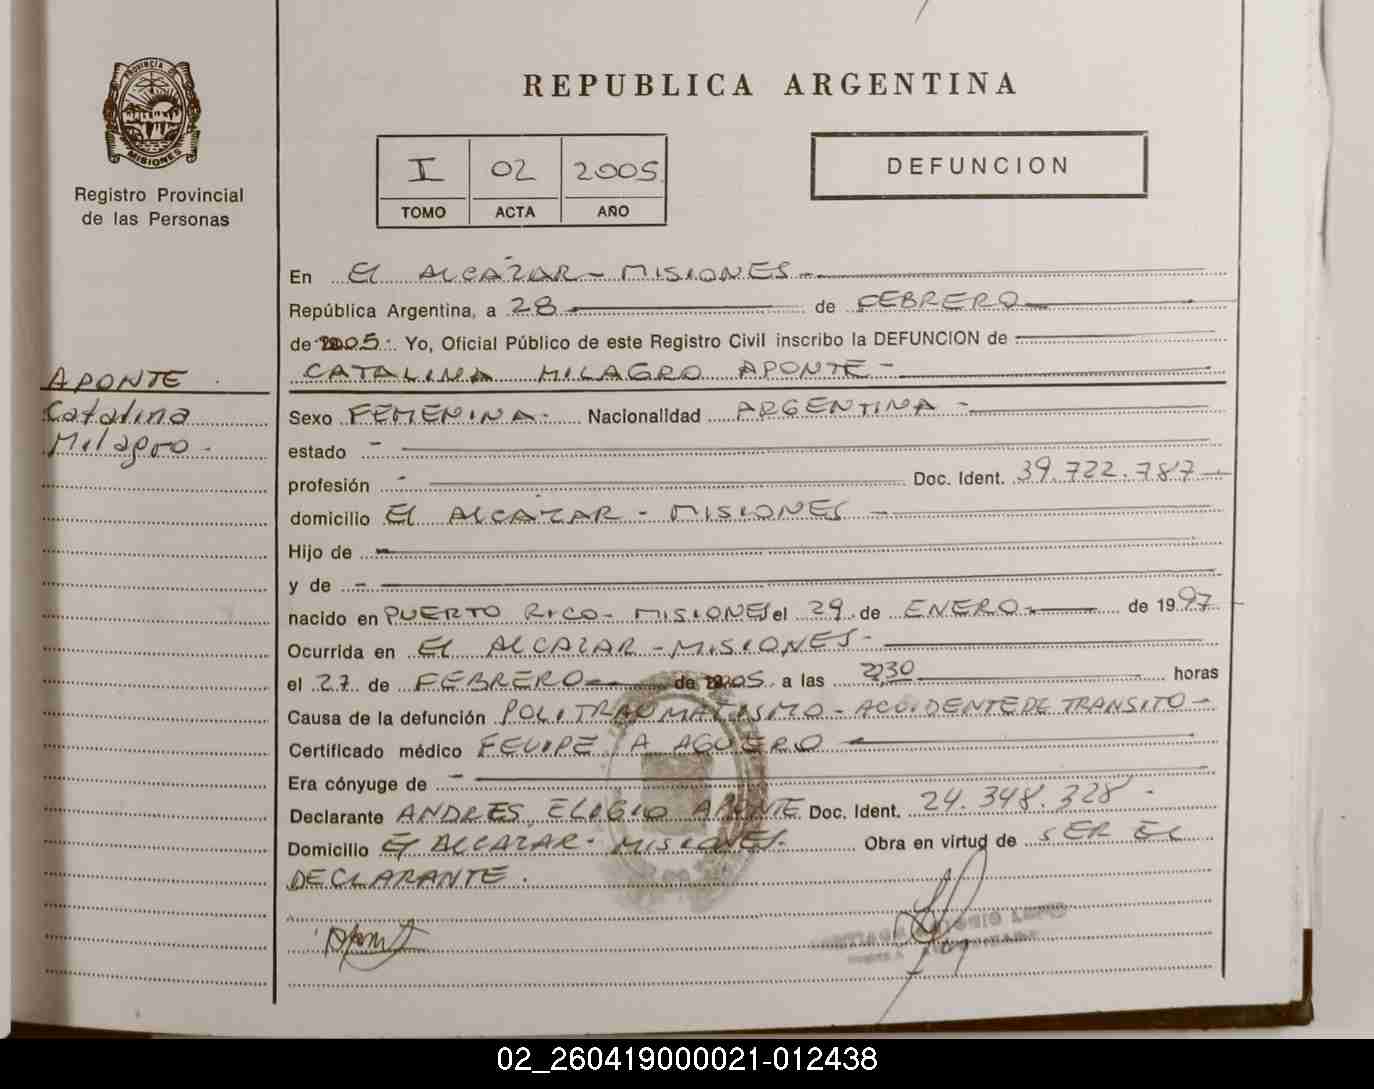 PROVINCIA DE
MISIONES
Registro Provincial
de las Personas
REPUBLICA ARGENTINA
I 02 2005
TOMO ACTA AÑO
DEFUNCION
En El ALCAZAR - MISIONES -
República Argentina, a 28 de FEBRERO
de 2005 Yo, Oficial Público de este Registro Civil inscribo la DEFUNCION de
CATALINA MILAGRO APONTE -
APONTE
Catalina
Milagro -
Sexo FEMENINA - Nacionalidad ARGENTINA -
estado -
profesión - Doc. Ident. 39.722.787 -
domicilio El ALCAZAR - MISIONES -
Hijo de -
y de -
nacido en PUERTO RICO - MISIONES el 29 de ENERO - de 1997
Ocurrida en El ALCAZAR - MISIONES -
el 27 de FEBRERO - de 2005 a las horas
Causa de la defunción POLITRAUMATISMO - ACCIDENTE DE TRANSITO -
Certificado médico FELIPE A AGUERO
Era cónyuge de -
Declarante ANDRES ELOGIO APONTE Doc. Ident. 24.348.328 -
Domicilio El ALCAZAR - MISIONES - Obra en virtud de SER EL
DECLARANTE .
02_260419000021-012438